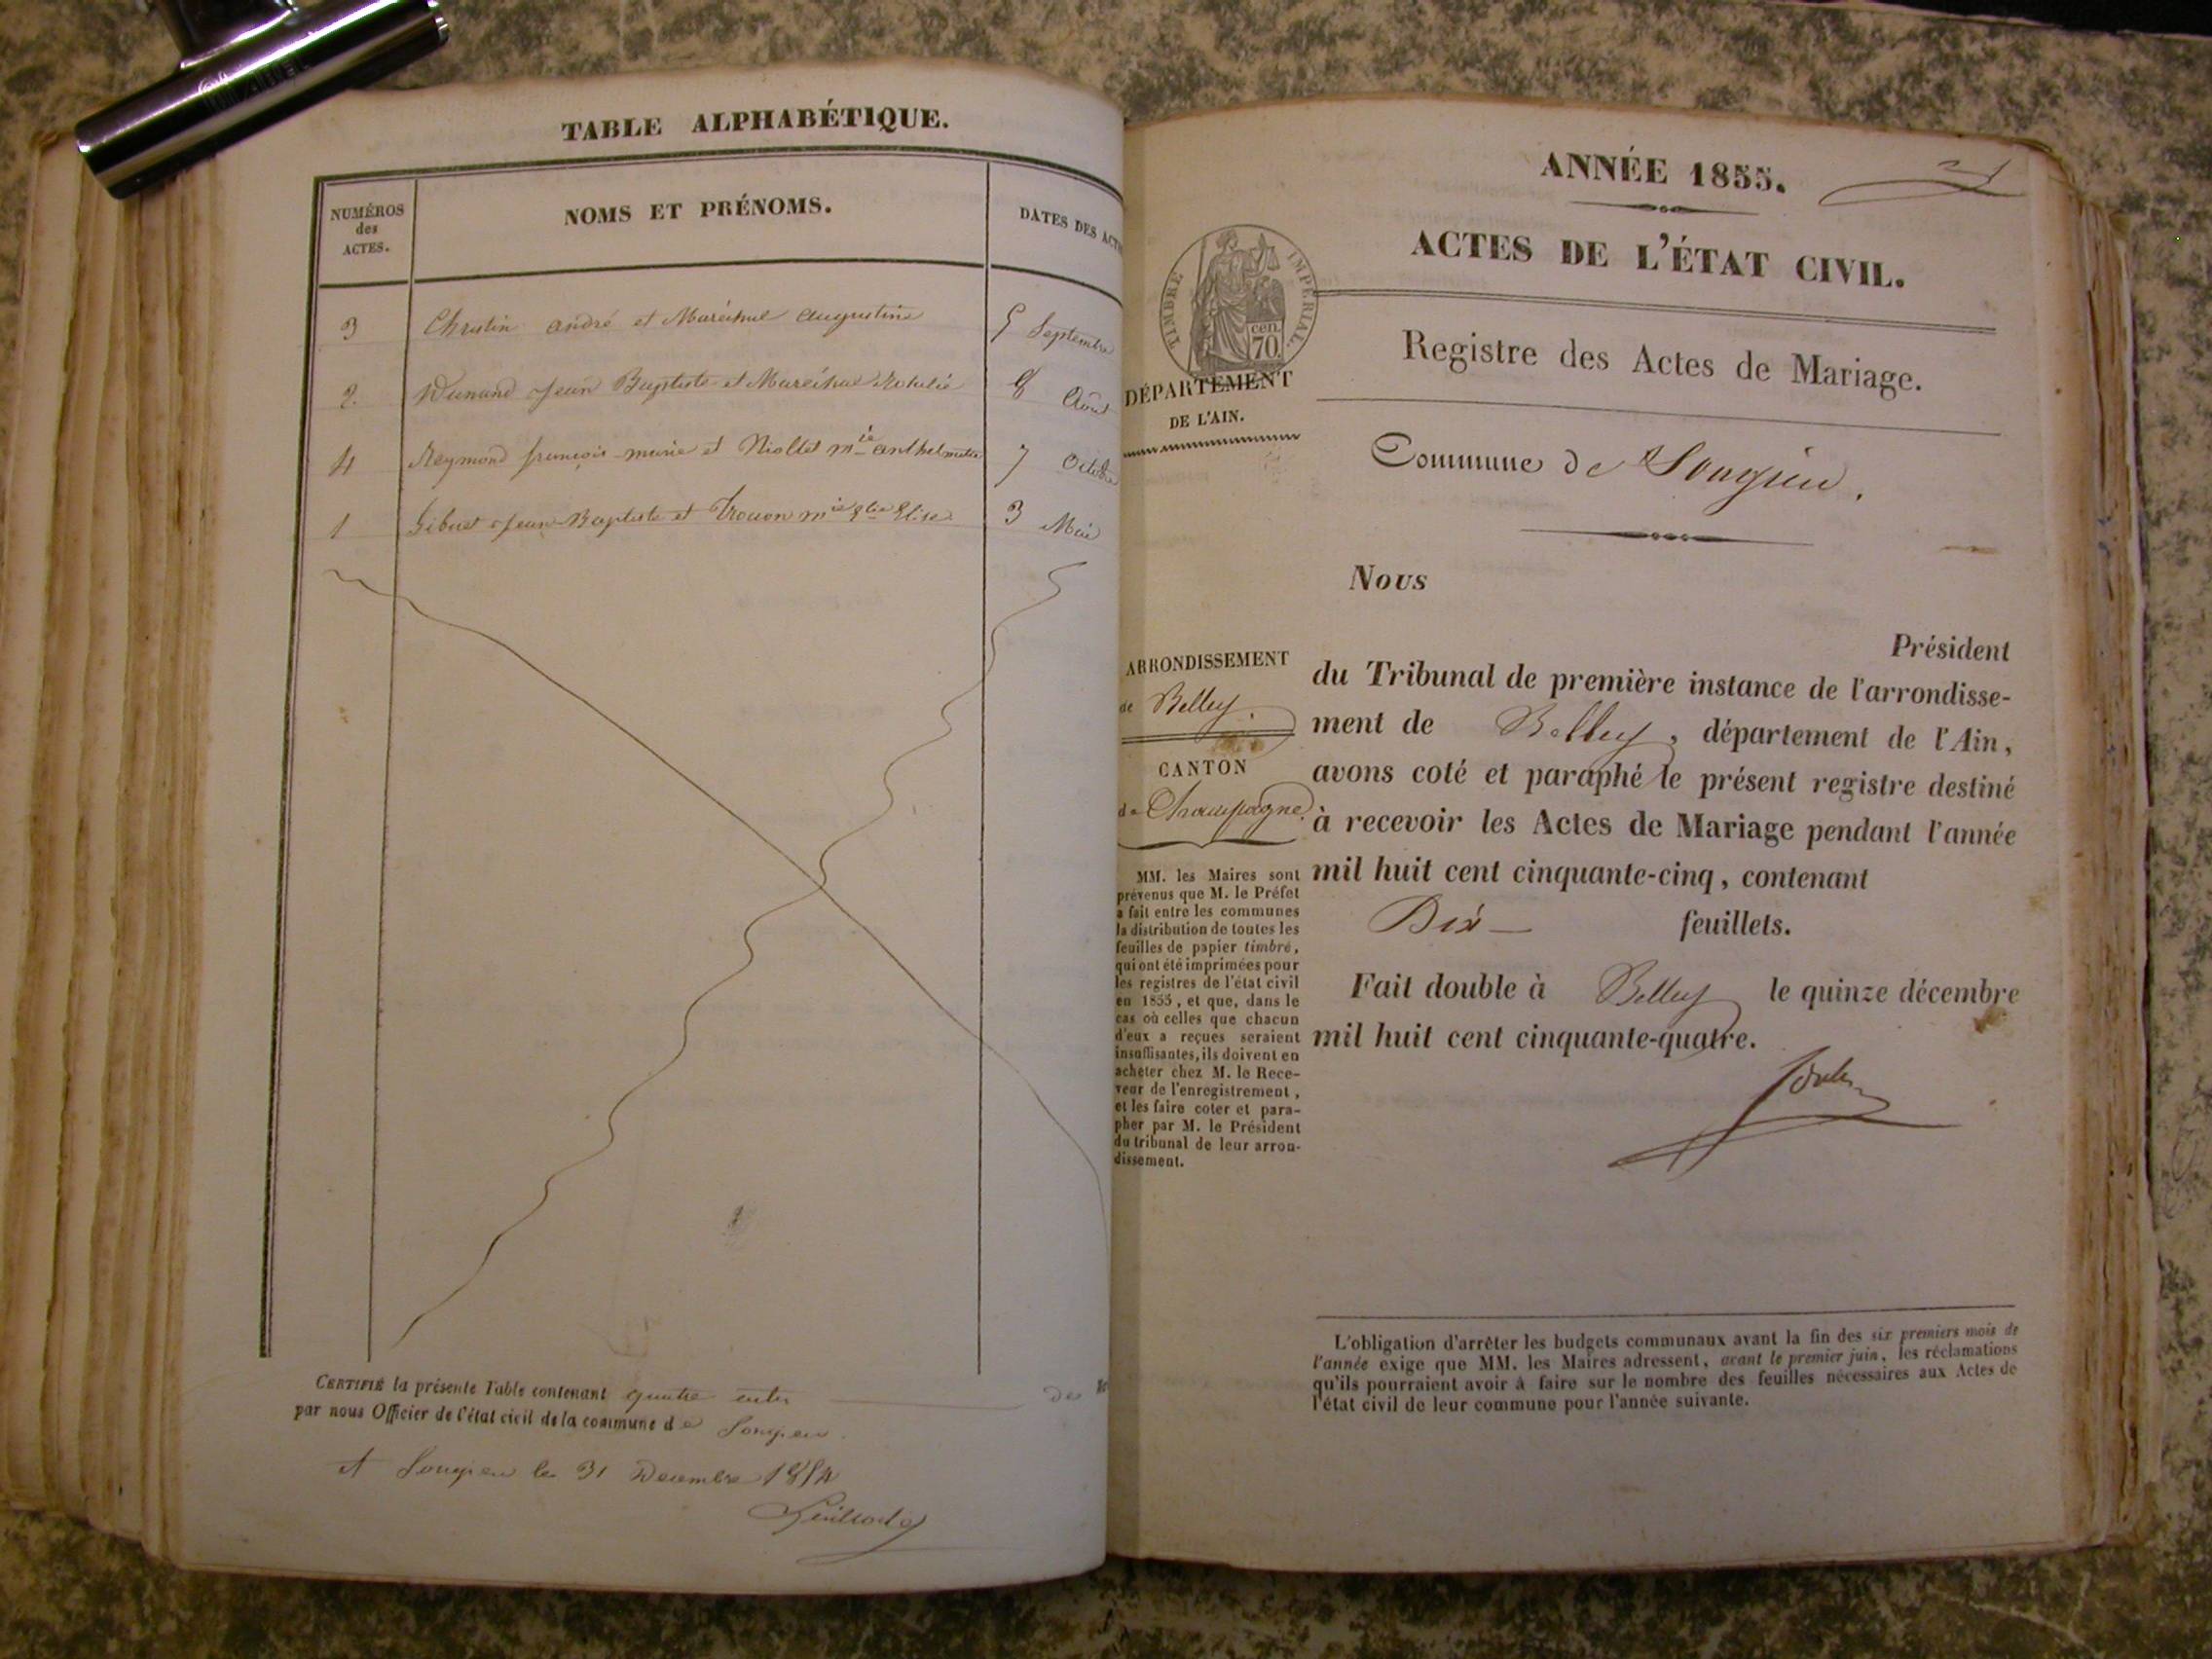 TABLE ALPHABÉTIQUE.
NUMÉROS
des
ACTES.
NOMS ET PRÉNOMS.
DATES DES ACT
3 Christin andré et Maréchal augustine 5 Septembre
2. Dunand Jean Baptiste et Maréchal 8 Août
4 Reymond françois marie et Niollet mie anthelmette 7 Octobre
1 Gibuet Jean-Baptiste et mie Elise 3 Mai
CERTIFIÉ la présente Table contenant quatre des
par nous Officier de l'état civil de la commune de Songieu
A Songieu le 31 Decembre 1854
ANNÉE 1855.
ACTES DE L'ÉTAT CIVIL.
TIMBRE IMPÉRIAL.
cen.
70.
Registre des Actes de Mariage.
DÉPARTEMENT
DE L'AIN.
Commune de Songieu.
Nous
Président
du Tribunal de première instance de l'arrondisse-
ment de Belley, département de l'Ain,
avons coté et paraphé le présent registre destiné
à recevoir les Actes de Mariage pendant l'année
mil huit cent cinquante-cinq, contenant
Dix feuillets.
Fait double à Belley le quinze décembre
mil huit cent cinquante-quatre.
ARRONDISSEMENT
de Belley.
CANTON
de Champagne.
MM. les Maires sont
prévenus que M. le Préfet
a fait entre les communes
la distribution de toutes les
feuilles de papier timbré,
qui ont été imprimées pour
les registres de l'état civil
en 1855, et que, dans le
cas où celles que chacun
d'eux a reçues seraient
insuffisantes, ils doivent en
acheter chez M. le Rece-
veur de l'enregistrement,
et les faire coter et para-
pher par M. le Président
du tribunal de leur arron-
dissement.
L'obligation d'arrêter les budgets communaux avant la fin des six premiers mois de
l'année exige que MM. les Maires adressent, avant le premier juin, les réclamations
qu'ils pourraient avoir à faire sur le nombre des feuilles nécessaires aux Actes de
l'état civil de leur commune pour l'année suivante.